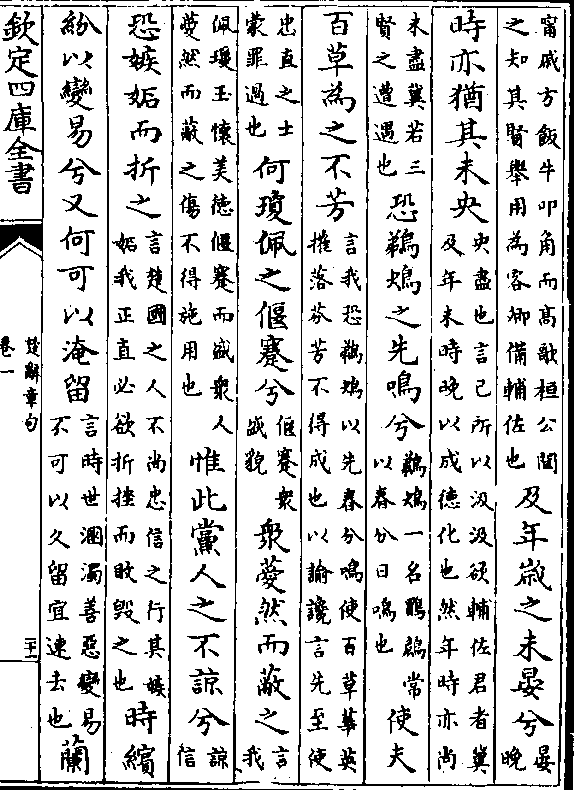 甯戚方飯牛叩角而髙歌桓公聞之知其賢舉用為客卿備輔佐也及年嵗之未晏兮晏晚
時亦猶其未央央盡也言己所以汲汲欲輔佐君者冀及年未時晚以成德化也然年時亦尚
未盡冀若三賢之遭遇也恐鵜鴂之先鳴兮鵜鴂一名常以春分日鳴也使夫
百草為之不芳言我恐鵜鴂以先春分鳴使百草華英摧落芬芳不得成也以諭讒言先至使
忠直之士蒙罪過也何瓊佩之偃蹇兮偃蹇衆盛貌衆薆然而蔽之言我
佩瓊玉懷美徳偃蹇而盛衆人薆然而蔽之傷不得施用也惟此黨人之不諒兮諒信
恐嫉妬而折之言楚國之人不尚忠信之行其嫉妬我正直必欲折挫而敗毁之也時繽
紛以變易兮又何可以淹留言時世溷濁善惡變易不可以久留宜速去也蘭
欽定四庫全書
楚辭章句
卷一
二十一